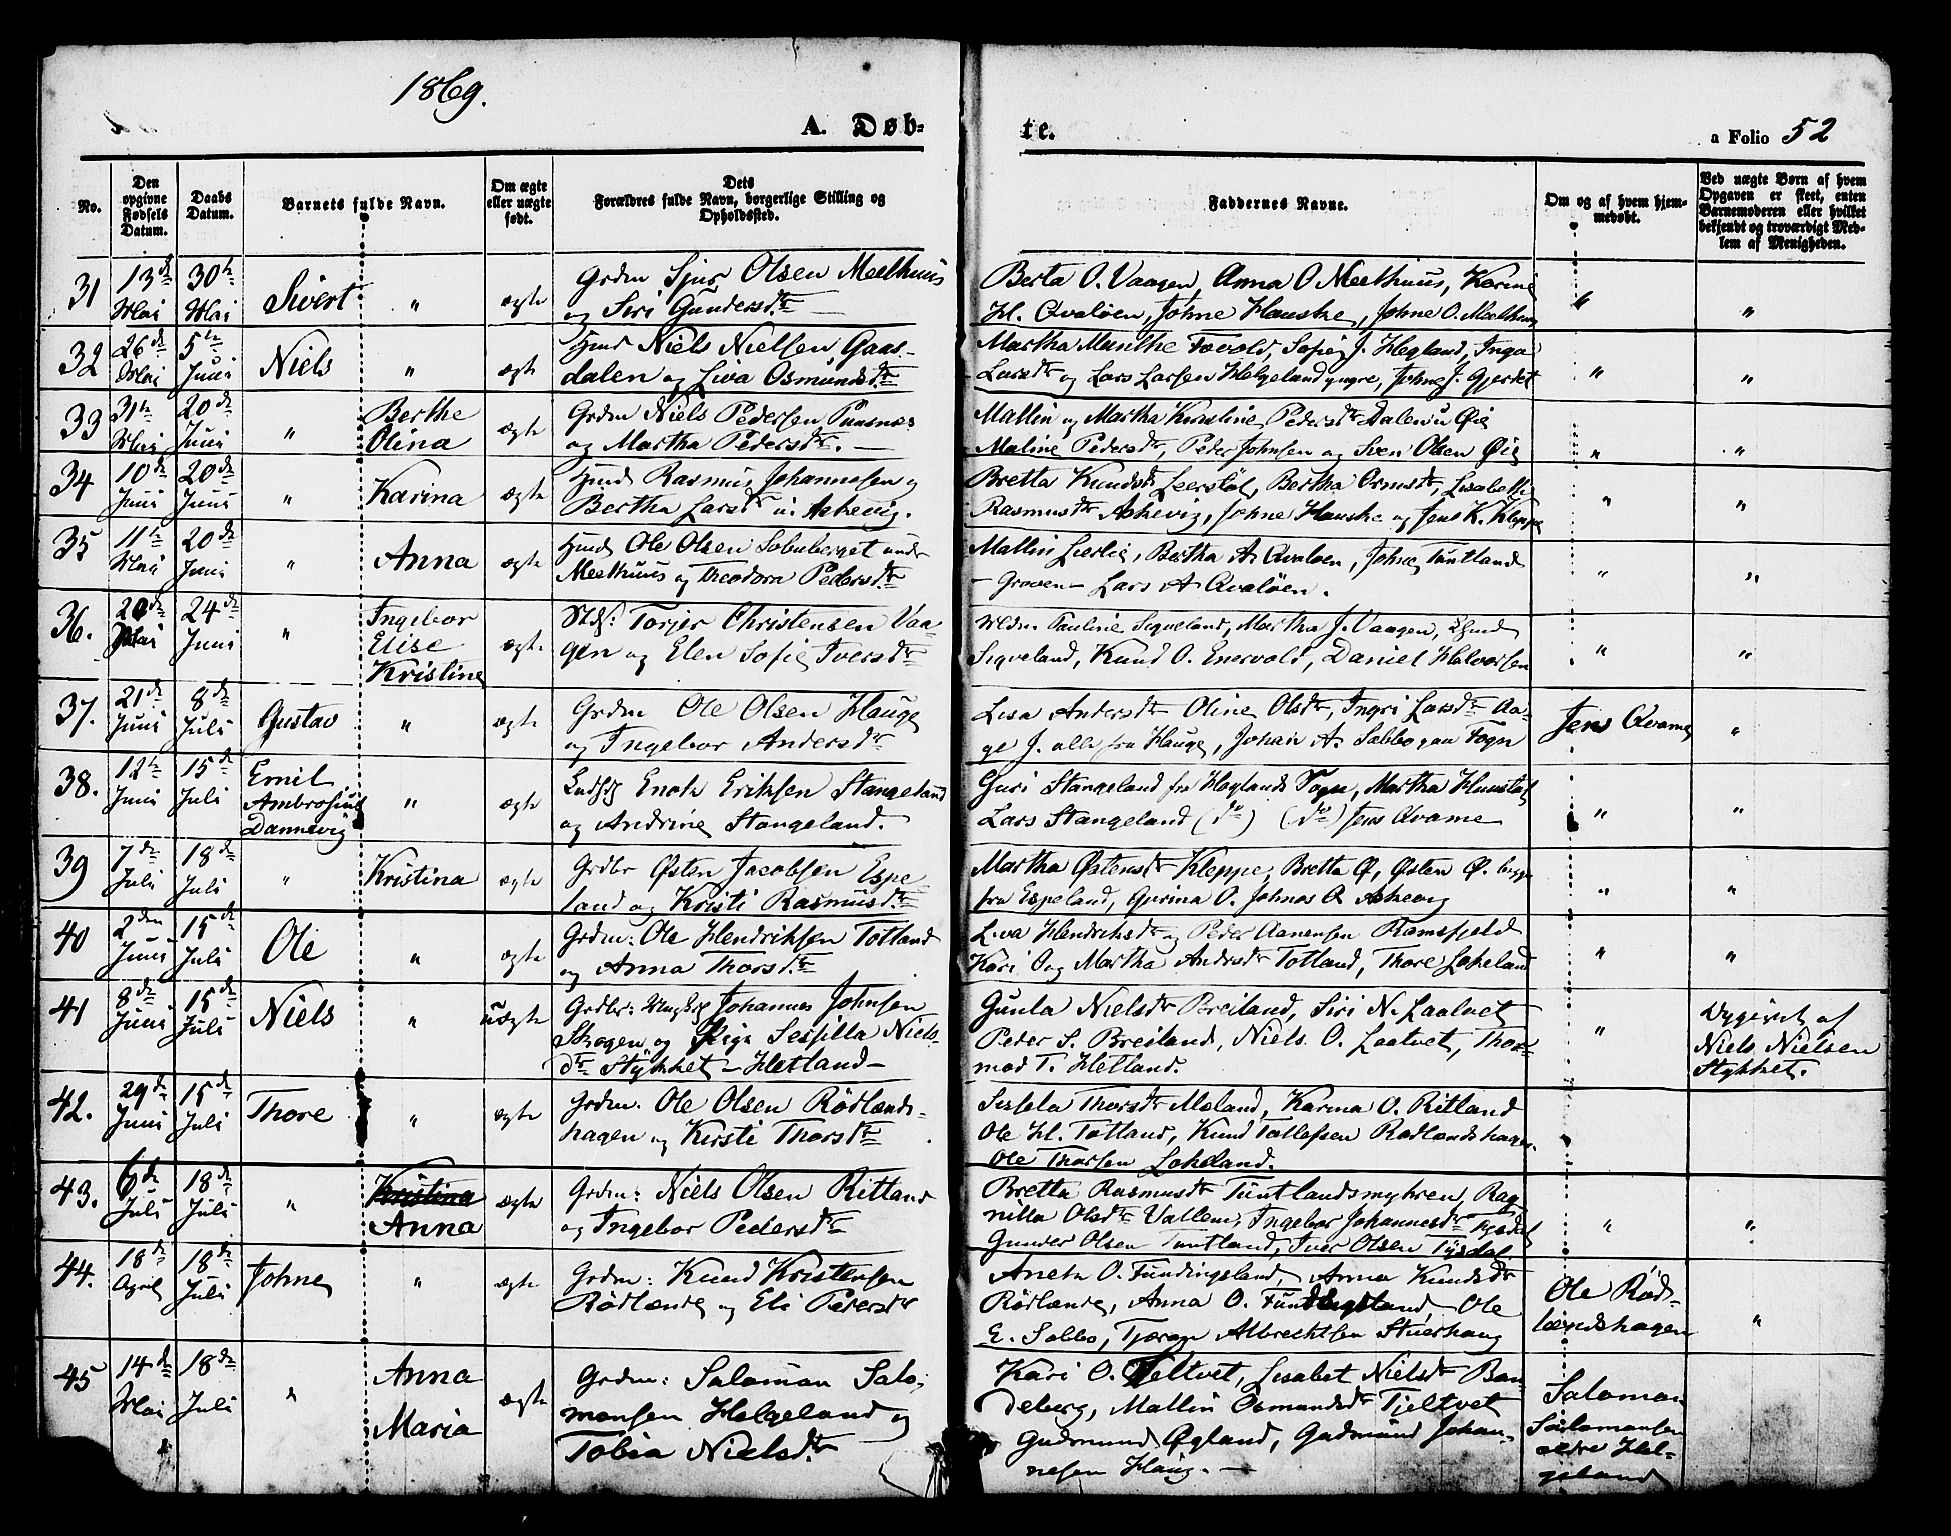 1869.
A. Døb-
te.
a Folio 52
No.
Den
opgivne
Fødsels
Datum.
Daabs
Datum.
Barnets fulde Navn.
Om ægte
eller uægte
født.
Dets
Forældres fulde Navn, borgerlige Stilling og
Opholdssted.
Faddernes Navne.
Om og af hvem hjem-
medøbt.
Ved uægte Børn af hvem
Opgaven er skeet, enten
Barnemoderen eller hvilket
bekjendt og troværdigt Med-
lem af Menigheden.
31 13de Mai 30te Mai Sivert " ægte
Grdm Sjur Olsen Meelhuus
og Siri Gundersdtr
Berta O. Vaagen, Anna O Meelhuus, Karine
H. Qvaløen, Johne Hauske, Johne O. Meelhuus
" "
32 26de Mai 5te Juni Niels " ægte
Hmd Niels Nielsen Gaas-
dalen og Liva Osmundsdtr
Martha Munthe Fovold, Sofie J. Hegland, Inga
Larsdtr og Lars Larsen Helgeland yngre, Johne J. Gjerdet
" "
33 31te Mai 20de Juni " Berthe
Olina ægte
Grdm Niels Pedersen Puusnæs
og Martha Pedersdtr.
Mallin og Martha Karoline Pedersdtr Dalen u Øie
Maline Pedersdtr, Peder Johnsen og Sven Olsen Øie
" "
34 10de Juni 20de Juni " Karina ægte
Hmd Rasmus Johannesen og
Bertha Larsdtr u: Askevig.
Bretta Knudsdtr Leerstøl, Bertha Ormsdtr, Lisabetha
Rasmusdtr Askevig, Johne Hauske og Jens K. Kleppe
" "
35 11te Mai 20de Juni " Anna ægte
Hmd Ole Olsen Solenberget under
Meelhuus og Theodora Pedersdtr
Mallin Lerlie, Bertha A Qvaløen, Johne Tuntland
- Groven - Lars A Qvaløen.
" "
36. 20de Mai 24de Juni " Ingebor
Elise
Kristine ægte
Torjer Christensen Vaa-
gen og Elen Sofie Iversdtr
Pauline Sigveland, Martha J. Vaagen,
Sigveland, Knud O. Enervold, Daniel Halvorsen
" "
37. 21de Juni 8de Juli Gustav " ægte
Grdm Ole Olsen Hauge
og Ingebor Andersdtr
Lisa Andersdtr Oline Olsdtr, Ingri Larsdtr Aa-
ge J. alle fra Hauge, Johan A. Sabbo paa Fogn
Jens Qvame "
38. 12te Juni 15de Juli Emil
Ambrosius
Dannevig " ægte
Enok Eriksen Stangeland
og Andrine Stangeland.
Guri Stangeland fra Høglands Sogn, Martha Hunstad
Lars Stangeland (do) (do) Jens Qvame
" "
39 7de Juli 18de Juli " Kristina ægte
Grdbr Østen Jacobsen Espe-
land og Kristi Rasmusdtr
Martha Østensdtr Kleppe, Bretta Ø, Østen Ø. begge
fra Espeland, Gurina O. Johnas O Askevig
" "
40 2den Juni 15de Juli Ole " ægte
Grdm: Ole Hendriksen Totland
og Anna Thorsdtr
Liva Hendriksdtr og Peder Aanensen Ramsfjeld
Kari O og Martha Andersdtr Totland, Thore Lokeland
" "
41 8de Juni 15de Juli Niels " uægte
Grdbr: Johannes Johnsen
Skogen og Pige Sessilla Niels-
dtr Stykket - Hetland -
Gunla Nielsdtr Breiland, Siri N. Laatvet
Peder S. Breiland, Niels O. Laatvet, Thor-
mod T. Hetland.
"
Opgivet af
Niels Nielsen
Stykket.
42. 29de Juni 15de Juli Thore " ægte
Grdm. Ole Olsen Rødlænds-
hagen og Kirsti Thorsdtr
Sissela Thorsdtr Moland, Karina O. Ritland
Ole H. Totland, Knud Tollefsen Rødlandshagen.
Ole Thorsen Lokeland.
43. 6de Juli 18de Juli " Kristina
Anna ægte
Grdm: Niels Olsen Ritland
og Ingebor Pedersdtr
Bretta Rasmusdtr Tuntlandsmyhren, Rag-
nilla Olsdtr Vallem, Ingebor Johannesdtr Tysdal
Gunder Olsen Tuntland, Iver Olsen Tysdal
" "
44. 18de April 18de Juli Johne " ægte
Grdm: Knud Kristensen
Rødlænde og Eli Pedersdtr
Aneta O. Fundingsland, Anna Knudsdtr
Rødlænde, Anna O. Fundingsland, Ole
E. Sabbo, Tjeran Albrechtsen Stuerhaug
Ole Rød-
lændshagen "
45 14de Mai 18de Juli " Anna
Maria ægte
Grdm: Salomon Salo-
monsen Helgeland og
Tobia Nielsdtr.
Kari O. Tjeltvet, Lisabet Nielsdtr Ban-
deberg, Mallin Osmundsdtr Tjeltvet
Gudmund Øgland, Gudmund Johan-
nesen Haug. -
Salomon
Salomonsen
ældre Hel-
geland